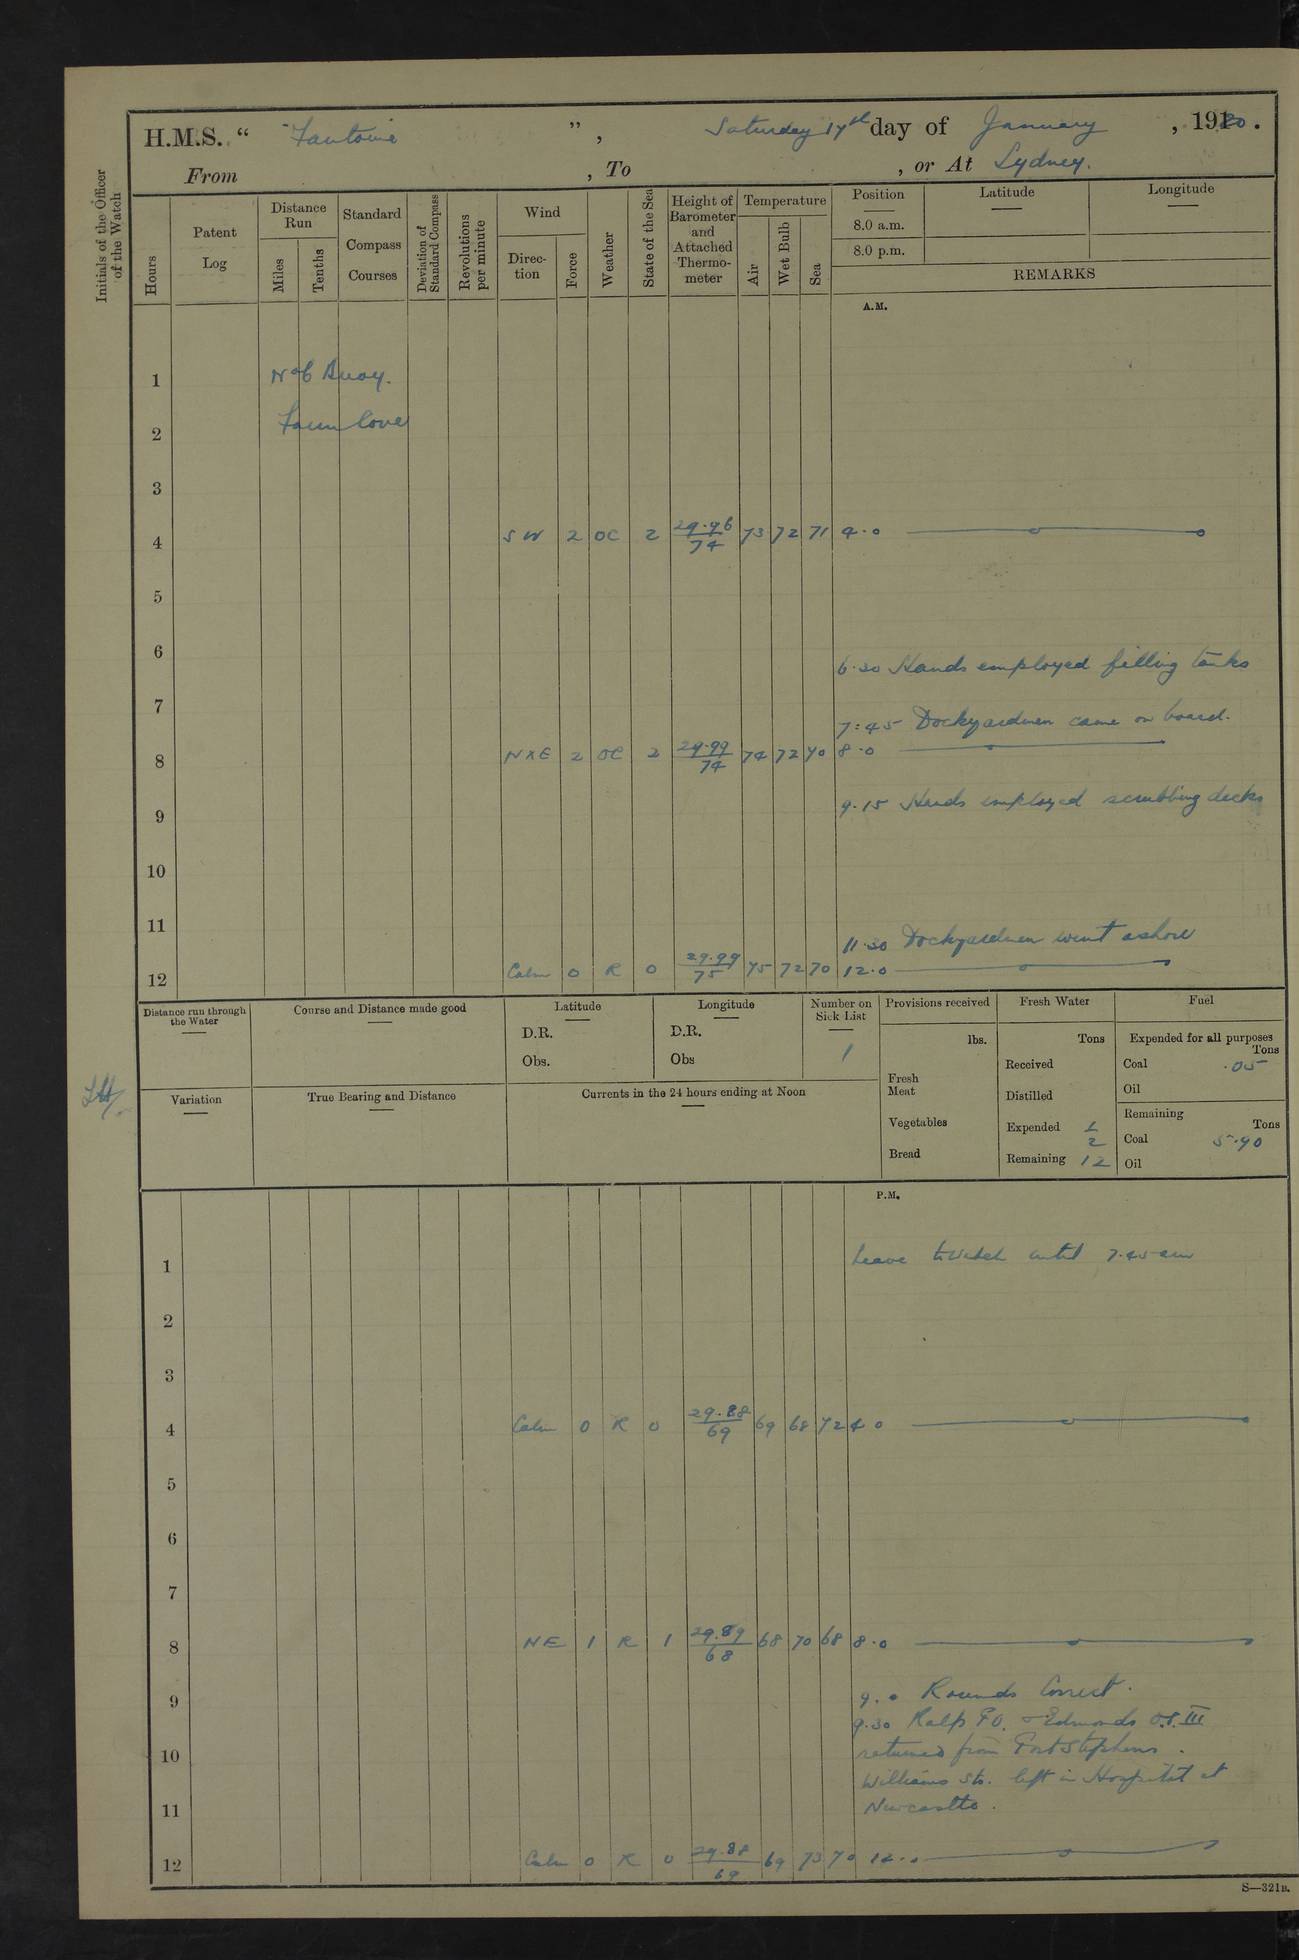 H.M.S. " Fantome ", Saturday 17th day of January, 1920.
From , To , or At Sydney.
Initials of the Officer of the Watch
Hours
Patent Log
Distance Run
Miles
Tenths
Standard Compass Courses
Deviation of Standard Compass
Revolutions per minute
Wind
Direction
Force
Weather
State of the Sea
Height of Barometer and Attached Thermometer
Temperature
Air
Wet Bulb
Sea
Position
8.0 a.m.
8.0 p.m.
Latitude
Longitude
REMARKS
A.M.
1 No 6 Buoy.
2 Farm Cove
3
4 SW 2 OC 2 29.96/74 73 72 71 4.0
5
6
6.30 Hands employed filling tanks
7
7:45 Dockyardmen came on board.
8 NXE 2 OC 2 29.99/74 74 72 70 8.0
9 9.15 Hands employed scrubbing decks
10
11
11.30 Dockyardmen went ashore
12 Calm 0 R 0 29.99/75 75 72 70 12.0
Distance run through the Water
Course and Distance made good
Latitude
D.R.
Obs.
Longitude
D.R.
Obs
Number on Sick List
1
Provisions received
lbs.
Fresh Meat
Vegetables
Bread
Fresh Water
Tons
Received
Distilled
Expended 1/2
Remaining 12
Fuel
Expended for all purposes
Tons
Coal .05
Oil
Remaining
Tons
Coal 5.90
Oil
Variation
True Bearing and Distance
Currents in the 24 hours ending at Noon
P.M.
1 Leave to watch until 7.45 am
2
3
4 Calm 0 R 0 29.88/69 69 68 72 4 0
5
6
7
8 NE 1 R 1 29.89/68 68 70 68 8.0
9 9.0 Rounds Correct.
9.30 Ralph P.O. & Edmonds O.S. III
10 returned from Port Stephens.
Williams Sto. left in Hospital at
11 Newcastle.
12 Calm 0 R 0 29.88/69 69 73 70 12.0
S—321B.